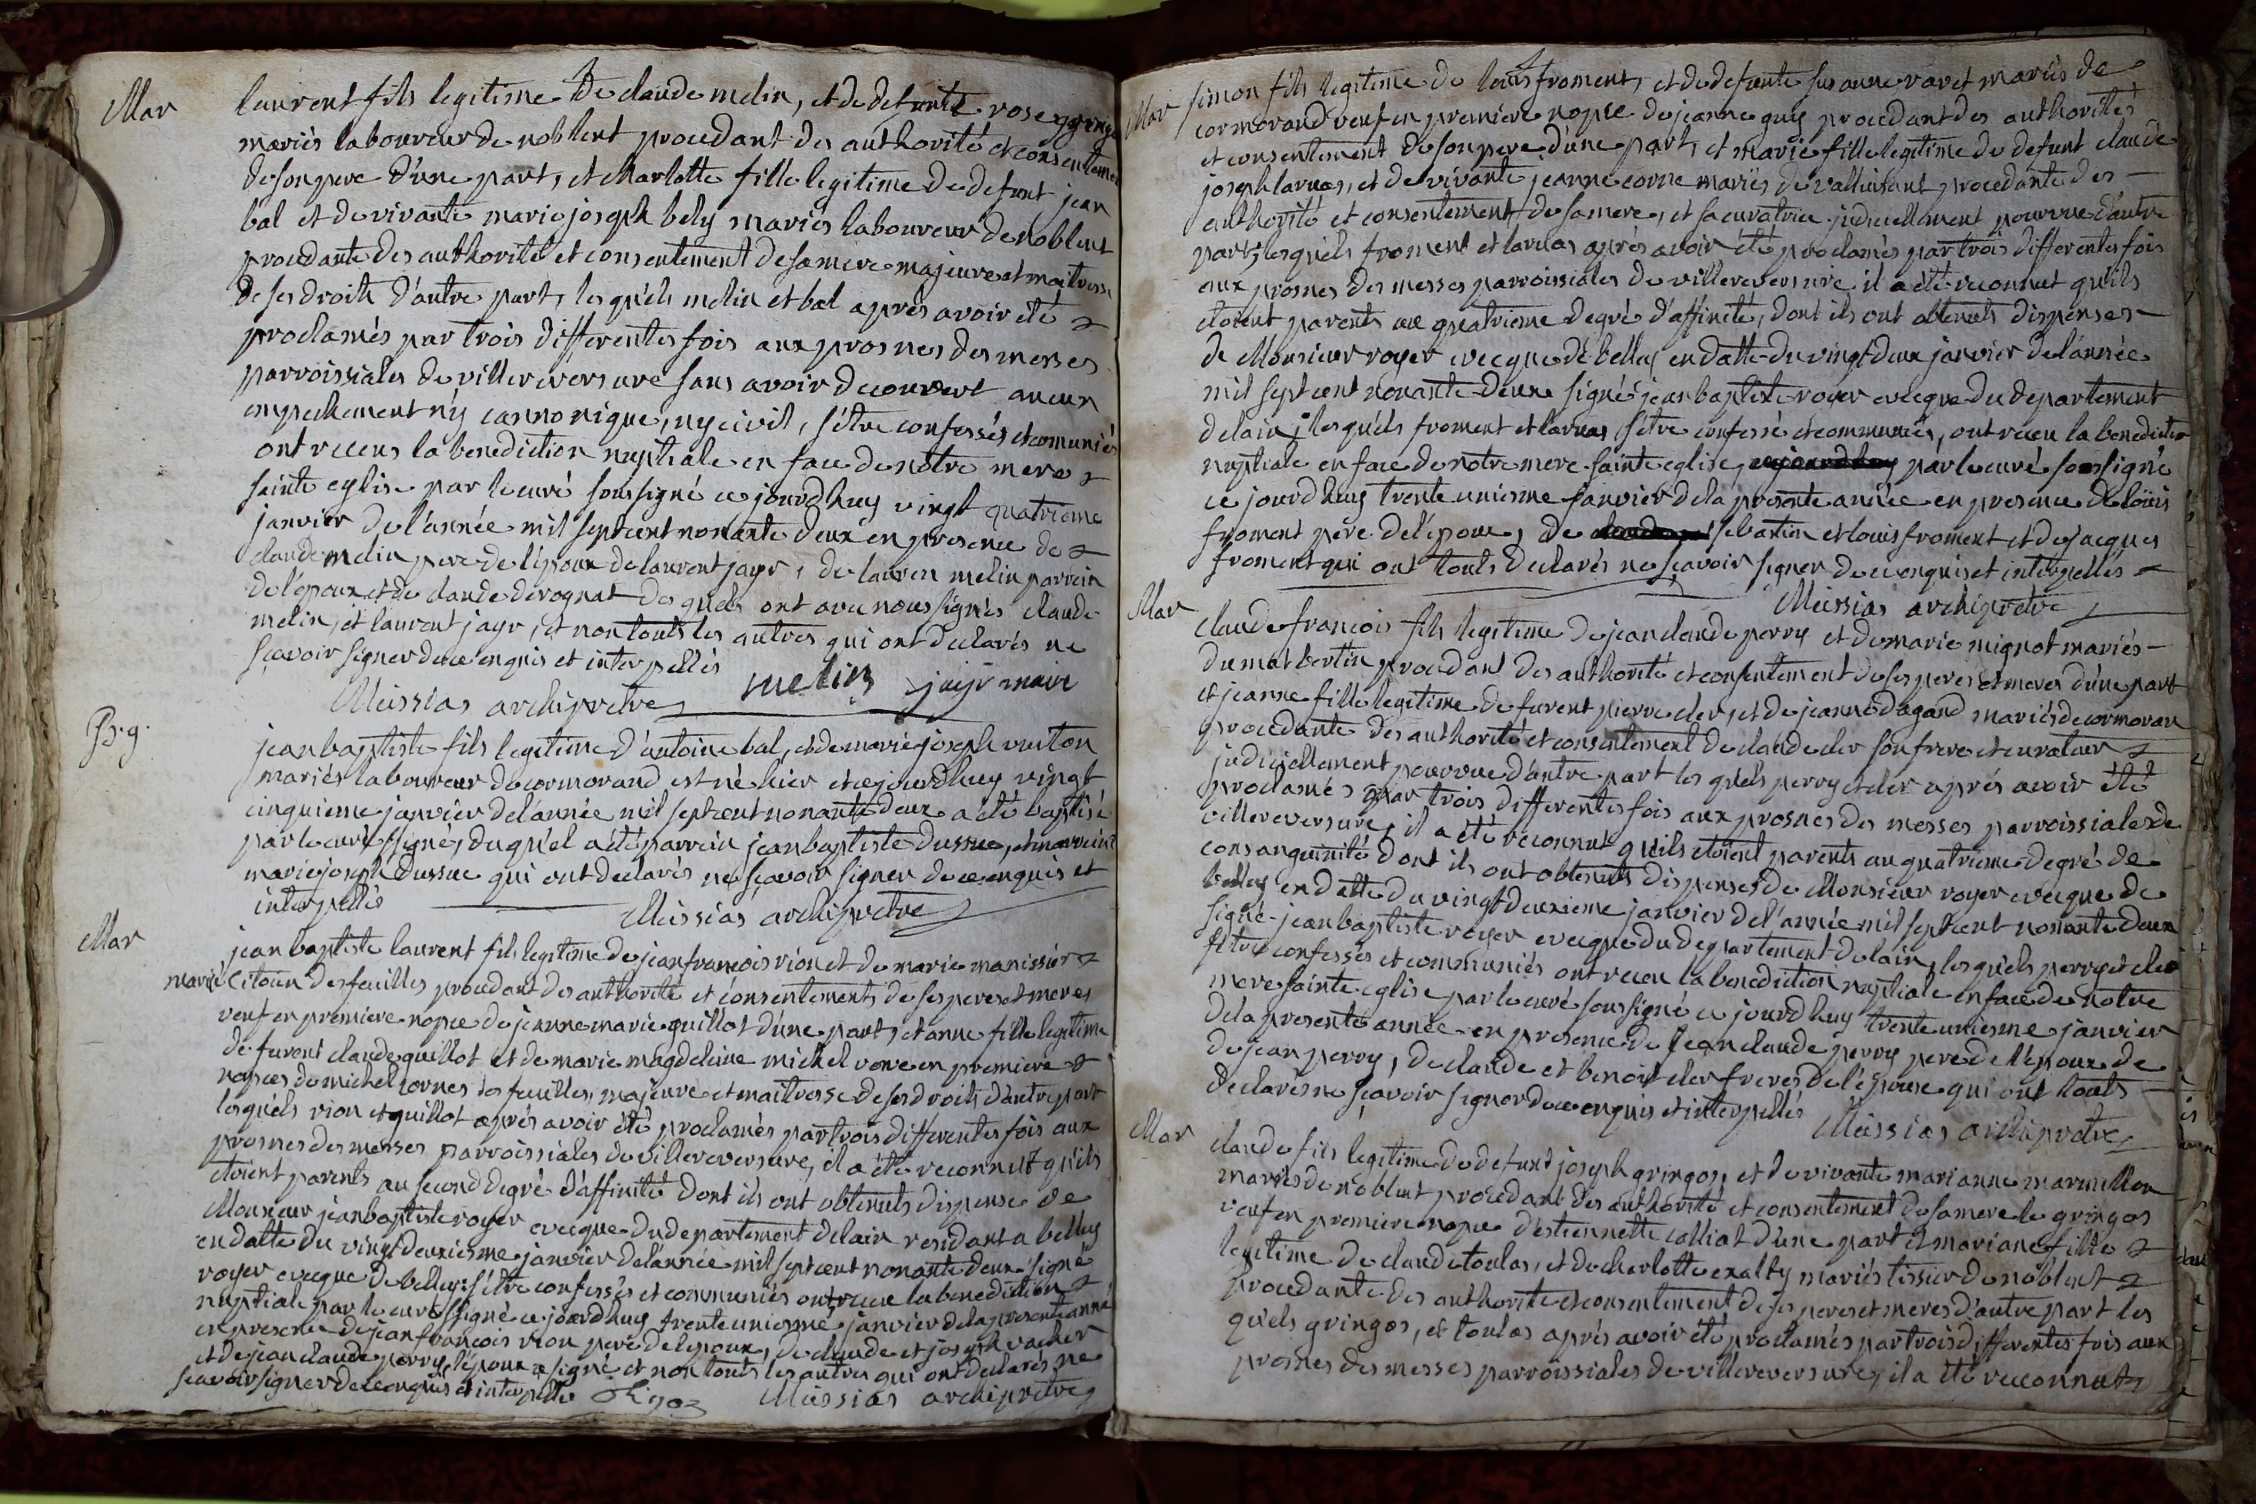 Mar
laurent fils legitime de claude melin, et de defunte rose gringoz
mariés laboureur de noblent procedant des authorité et consentement
de son pere d'une part, et charlotte fille legitime de defunt jean
bal et de vivante marie joseph bely mariés laboureur de noblent
procedante des authorité et consentement de sa mere majeure et maitresse
de ses droits d'autre part, les quels melin et bal aprés avoir eté
proclamés par trois differentes fois aux prosnes des messes
parroissiales de villereversure sans avoir decouvert aucun
empechement n'y cannonique, ny civil, s'être confessés et comuniés
ont receus la benediction nuptiale en face de nôtre mere
sainte eglise par le curé soussigné ce jourdhuy vingt quatrieme
janvier de l'année mil sept cent nonante deux en presence de
claude melin pere de l'epoux de laurent jayr, de lauren melin parrein
de l'epoux et de claude derognat des quels ont avec nous signés claude
melin, et laurent jayr, et non touts les autres qui ont declarés ne
sçavoir signer de ce enquis et interpellés
Messias archipretre melin jayr maire
B.g.
jean baptiste fils legitime d'antoine bal, et de marie joseph vuiton
mariés laboureur de cormorand est né hier et ce jourdhuy vingt
cinquieme janvier de l'année mil sept cent nonante deux a eté baptisé
par le curé ssigné, du quel a eté parrein jean baptiste dussuc, et marreine
marie joseph dussuc qui ont declarés ne sçavoir signer de ce enquis et
interpellés
Messias archipretre
Mar
jean baptiste laurent fils legitime de jean francois rion et de marie manissier
mariés citoien des feuilles procedant des authorité et consentements de ses peres et meres
veuf en premiere nopce de jeanne marie guillot d'une part, et anne fille legitime
de furent claude guillot et de marie magdeleine michel veuve en premiere
nopces de michel cornes des feuilles, majeure et maitresse de ses droits d'autre part
les quels rion et guillot aprés avoir été proclamés par trois differentes fois aux
prosnes des messes parroissiales de villereversure, il a été reconnut qu'ils
etoient parents au second degré d'affinité dont ils ont obtenuts dispense de
Monsieur jean baptiste royer evecque du departement de lain residant a belley
en datte du vingt deuxiesme janvier de l'année mil sept cent nonante deux signé
royer evecque de belley: s'être confessés et communiés ont receu la benediction
nuptiale par le curé ssigné ce jourdhuy trente uniesme janvier de la presente année
en presence de jean françois rion pere de l'epoux, de claude et joseph vacher
et de jean claude perry, l'epoux a signé et non touts les autres qui ont declarés ne
sçavoir signer de ce enquis et interpellés Rion Messias archipretre
Mar
simon fils legitime de louis froment, et de defunte susanne ravet mariés de
cormorand veuf en premiere nopce de jeanne guy procedant des authorités
et consentement de son pere d'une part, et marie fille legitime de defunt claude
joseph laruas, et de vivante jeanne corne mariés de valluisant procedante des
authorité et consentement de sa mere, et sa curatrice judiciellement pourvue d'autre
part, les quels froment et laruas aprés avoir été proclamés par trois differentes fois
aux prosnes des messes parroissiales de villereversure il a été reconnut qu'ils
etoient parents au quatrieme degré d'affinité, dont ils ont obtenuts dispenses
de Monsieur royer evecque de belley en datte du vingt deux janvier de l'année
mil sept cent nonante deux signé jean baptiste royer evecque du departement
de lain, les quels froment et laruas s'être confessé et communiés, ont receu la benediction
nuptiale en face de notre mere sainte eglise par le curé soussigné
ce jourdhuy trente uniesme janvier de la presente année en presence de loüis
froment pére de l'epoux, de sebastien et louis froment et de jacques
froment qui ont touts declarés ne sçavoir signer de ce enquis et interpellés
Messias archipretre
Mar
claude francois fils legitime de jean claude perry et de marie mignot mariés
du mas bertin procedant des authorité et consentement de ses peres et meres d'une part
et jeanne fille legitime de furent pierre cler, et de jeanne dagand mariés de cormoran
procedante des authorité et consentement de claude cler son frere et curateur
judiciellement pourvue d'autre part les quels perry et cler aprés avoir été
proclamés par trois differentes fois aux prosnes des messes parroissiales de
villereversure, il a été reconnut qu'ils etoient parents au quatrieme degré de
consanguinité dont ils ont obtenuts dispenses de Monsieur royer evecque de
belley en datte du vingt deuxieme janvier de l'année mil sept cent nonante deux
signé jean baptiste royer evecque du departement de lain, les quels perry et cler
s'être confessés et communiés ont receu la benediction nuptiale en face de notre
mere sainte eglise par le curé soussigné ce jourdhuy trente uniesme janvier
de la presente année en presence de jean claude perry pere de l'epoux de
de jean perry, de claude et benoit cler freres de l'épouse qui ont touts
declarés ne sçavoir signer de ce enquis et interpellés
Messias archipretre
Mar
claude fils legitime de defunt joseph gringoz, et de vivante marianne marmillon
mariés de noblent procedant des authorité et consentement de sa mere le gringos
veuf en premiere nopce d'estiennette calliat d'une part et mariane fille
legitime de claude toulas, et de charlotte exalty mariés tissier de noblent
procedante des authorité et consentement de ses peres et meres d'autre part les
quels gringos, et toulas aprés avoir été proclamés par trois differentes fois aux
prosnes des messes parroissiales de villereversure, il a été reconnut